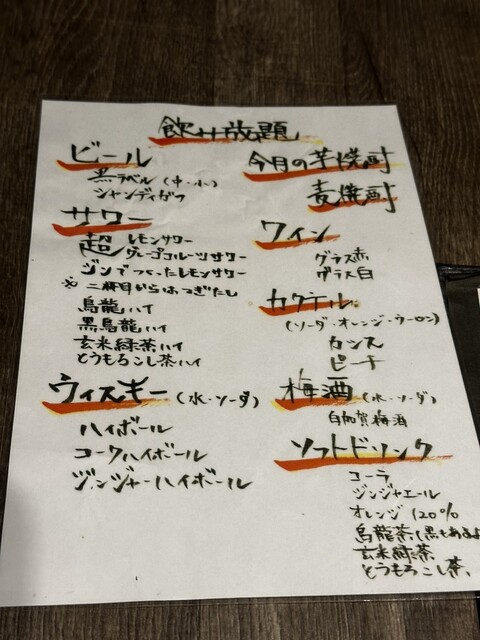 飲み放題
ビール
黒ラベル(中・小)
シャンディガフ
サワー
超 レモンサワー
グレープフルーツサワー
ジンでつくったレモンサワー
※二杯目からはつぎたし
烏龍ハイ
黒烏龍ハイ
玄米緑茶ハイ
とうもろこし茶ハイ
ウィスキー(水・ソーダ)
ハイボール
コークハイボール
ジンジャーハイボール
今月の芋焼酎
麦焼酎
ワイン
グラス赤
グラス白
カクテル
(ソーダ・オレンジ・ウーロン)
カシス
ピーチ
梅酒(水・ソーダ)
白加賀梅酒
ソフトドリンク
コーラ
ジンジャエール
オレンジ120%
烏龍茶(黒もあるよ
玄米緑茶
とうもろこし茶